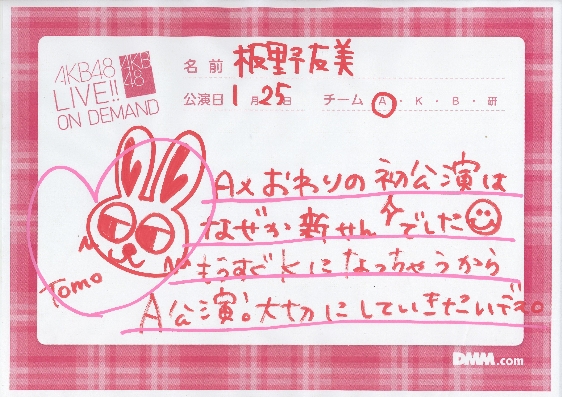 AKB48
LIVE!!
ON DEMAND
AKB
48
名前 板野友美
公演日 1月25日 チーム A・K・B・研
AXおわりの初公演は
なぜか新せんでした
もうすぐKになっちゃうから
A公演。大切にしていきたいです。
Tomo
DMM.com